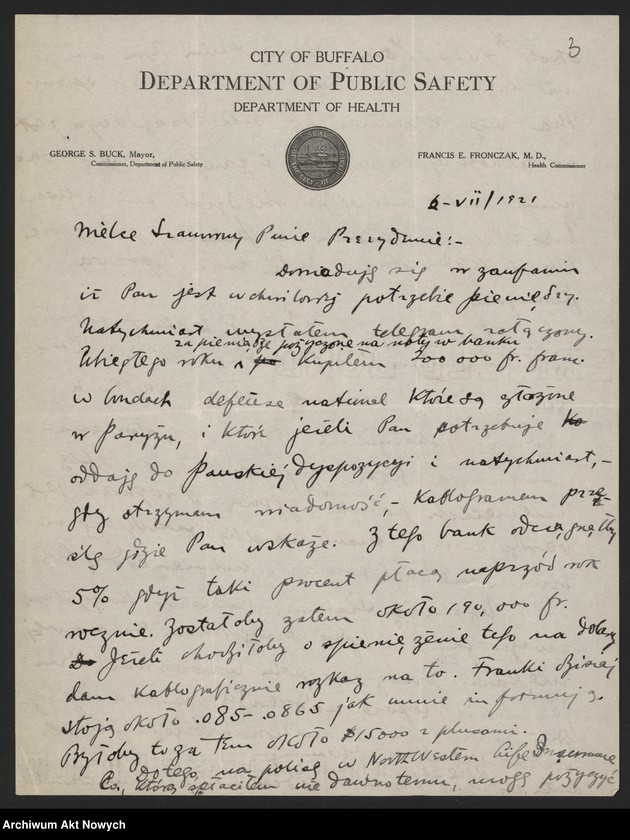 3
CITY OF BUFFALO
DEPARTMENT OF PUBLIC SAFETY
DEPARTMENT OF HEALTH
GEORGE S. BUCK, Mayor,
Commissioner, Department of Public Safety
FRANCIS E. FRONCZAK, M. D.,
Health Commissioner
6-VII/1921
Wielce Szanowny Panie Prezydencie:-
Dowiaduję się w zaufaniu
iż Pan jest w chwilowej potrzebie pieniędzy.
Natychmiast wysłałem telegram załączony.
za pieniądze pożyczone na notę w banku
Ubiegłego roku kupiłem 200 000 fr. franc.
w bondach defense national które są złożone
w Paryżu, i które jeżeli Pan potrzebuje
oddaję do Pańskiej dyspozycyi i natychmiast,-
gdy otrzymam wiadomość,- kablogramem prze-
ślę gdzie Pan wskaże. Z tego bank odciągnąłby
5% gdyż taki procent płacą naprzód rok
rocznie. Zostałoby zatem około 190,000 fr.
Jeżeli chodziłoby o spieniężenie tego na dolary
dam kablograficznie rozkaz na to. Franki dzisiaj
stoją około .085-.0865 jak mnie informują.
Byłoby to za tem około $15000 z plusami.
do tego, na polisę w NorthWestern Life Insurance
Co., którą spłaciłem nie dawno temu, mogę pożyczyć
Archiwum Akt Nowych